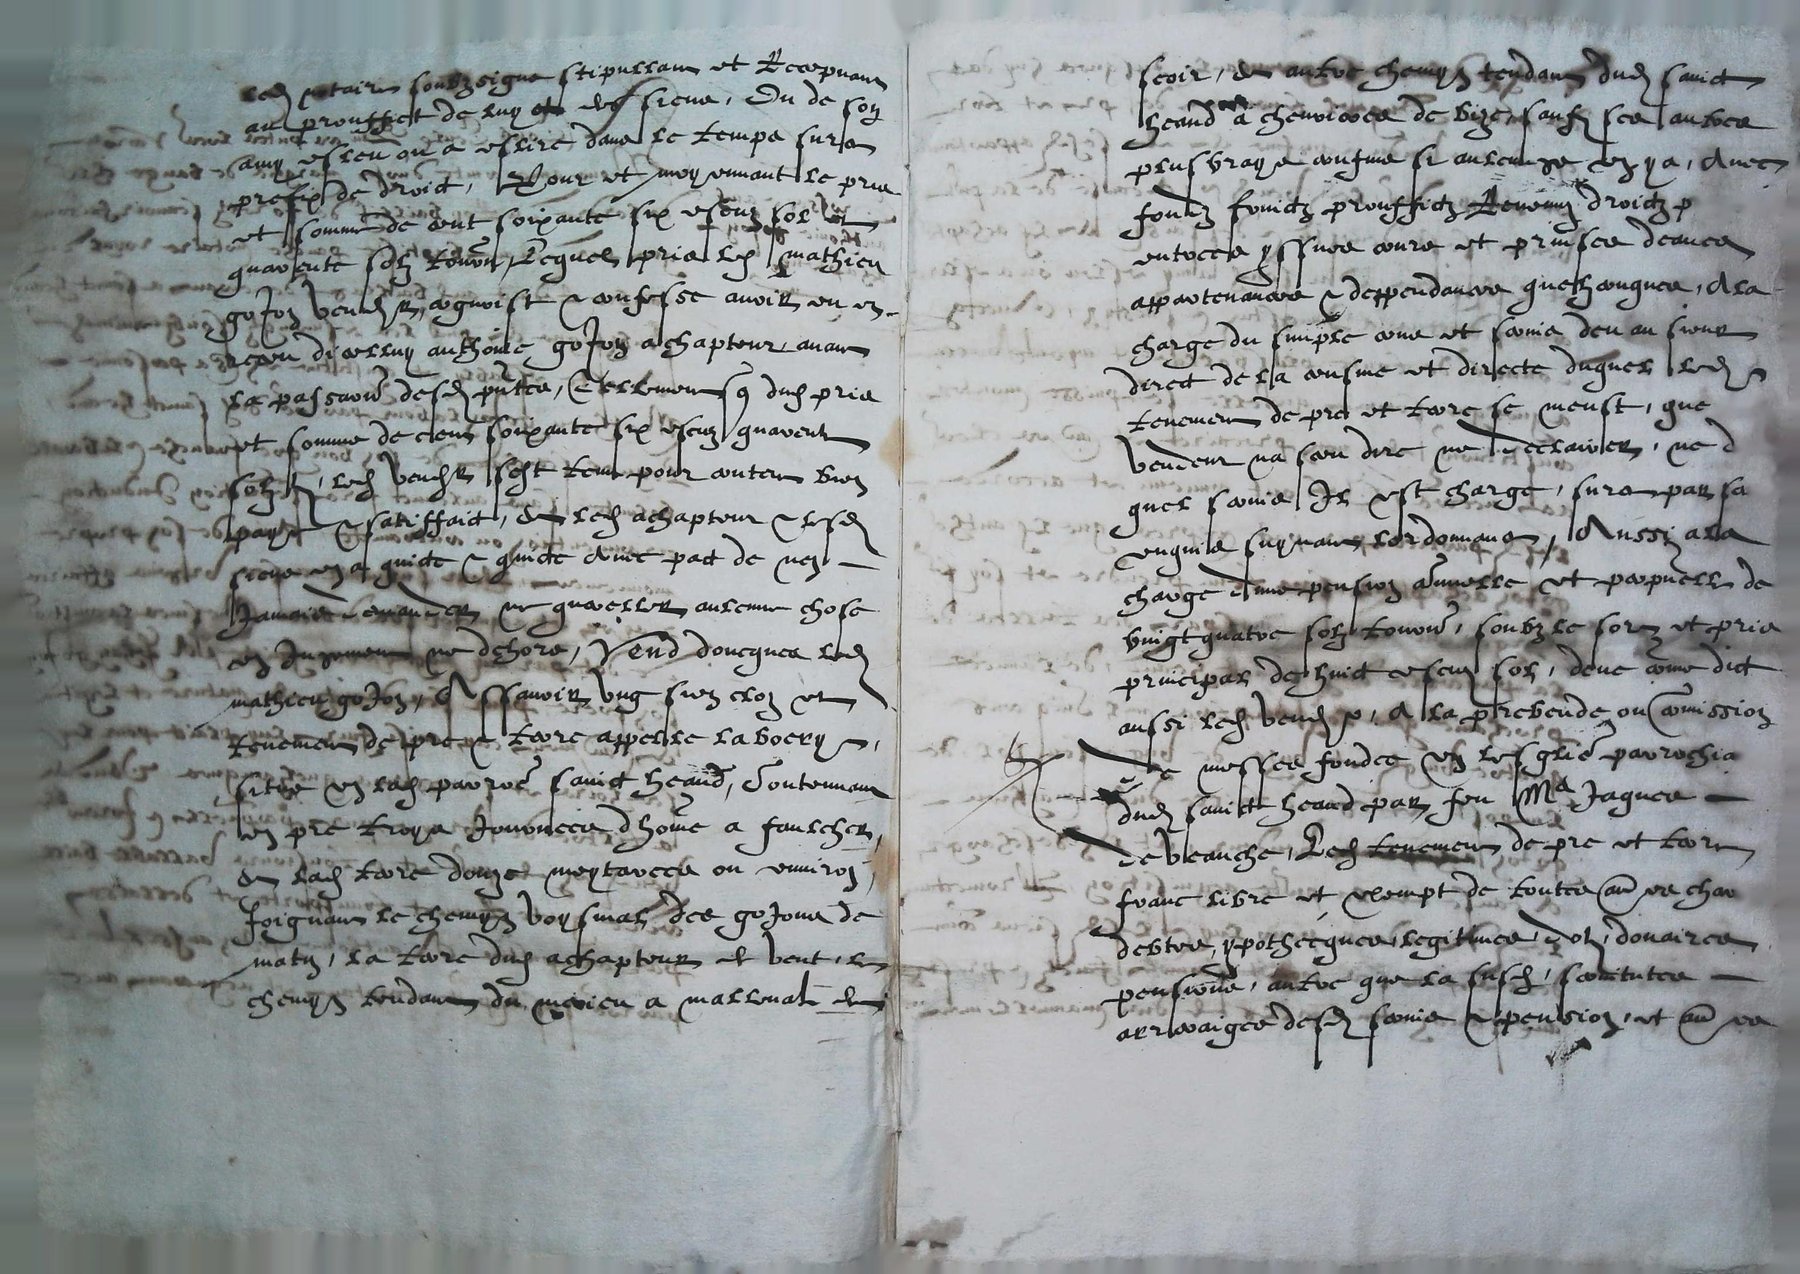 led notaire soubzsigne stipullant et Recepvant
au prouffict de luy et des siens, Ou de son
amy esleu ou a eslire dans le temps sura
prefix de droict, Pour et moyennant le pris
et somme de cent soixante six escuz sol et
quarente solz tournois, Lequel pris led mathieu
goJon vendr, cognoist & confesse avoir eu et
receu dicelluy anthoine goJon achapteur avant
la passation desd pntes, Tellement q dud pris
et somme de cent soixante six escuz quarente
solz led vendr sest tenu pour content bien
paye & satisffaict, Et led achapteur & lesd
siens en a quicte & quicte avec pact de nen
Jamais demander ne quereller aulcune chose
en Jugement ne dehors, Vend doncques led
mathieu goJon, Assavoir ung sien cloz et
tenement de pre & terre appelle la boery
situe en lad parroe sainct heand, Contenant
en pre troys Journees dhome a faulcher,
Et lad terre douze meytarees ou environ,
Joignant le chemyn voysinal des goJons de
matin, la terre dud achapteur de vent, le
chemyn tendant du meieu a malleval de
seoir, Et autre chemyn tendant dud sainct
heand a chenieres de bize, sauf ses autres
plus vrays confins si aulcungs en y a, Avec
fondz fruictz prouffictz Revenuz droictz
entrees yssues cours et prinses deaues
appartenances & deppendances quelzconques, A la
charge du simple cens et servis deu au sieur
direct de la censive et directe duquel led
tenement de pre et terre se meust, que
vendeur na sceu dire ne declairer, ne d
quel servis Il est charge, sura par sa
enquis suyvant lordonnance, Aussi a la
charge dune pension annuelle et perpetuelle de
vingt quatre solz tournois, soubz le sort et pris
principal de huict escuz sol, deue come dict
aussi led vendr, A la prebende ou comission
de messes fondee en lesglise parrochia
dud sainct heand par feu Me Jaques
de veauche, Led tenement de pre et terre
franc libre et exempt de toutes autres char
debtes, ypothecques, legitimes, dotz, douaires
pensions, autre que la susd, servitutes
arreraiges desd servis & pension, et autres